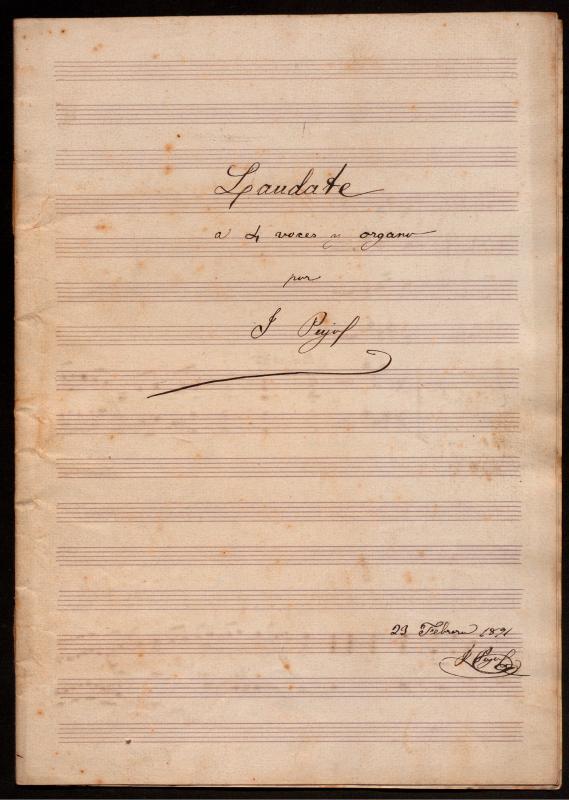 Laudate
a 4 voces y organo
por
J Pujol
23 Febrero 1891
J Pujol